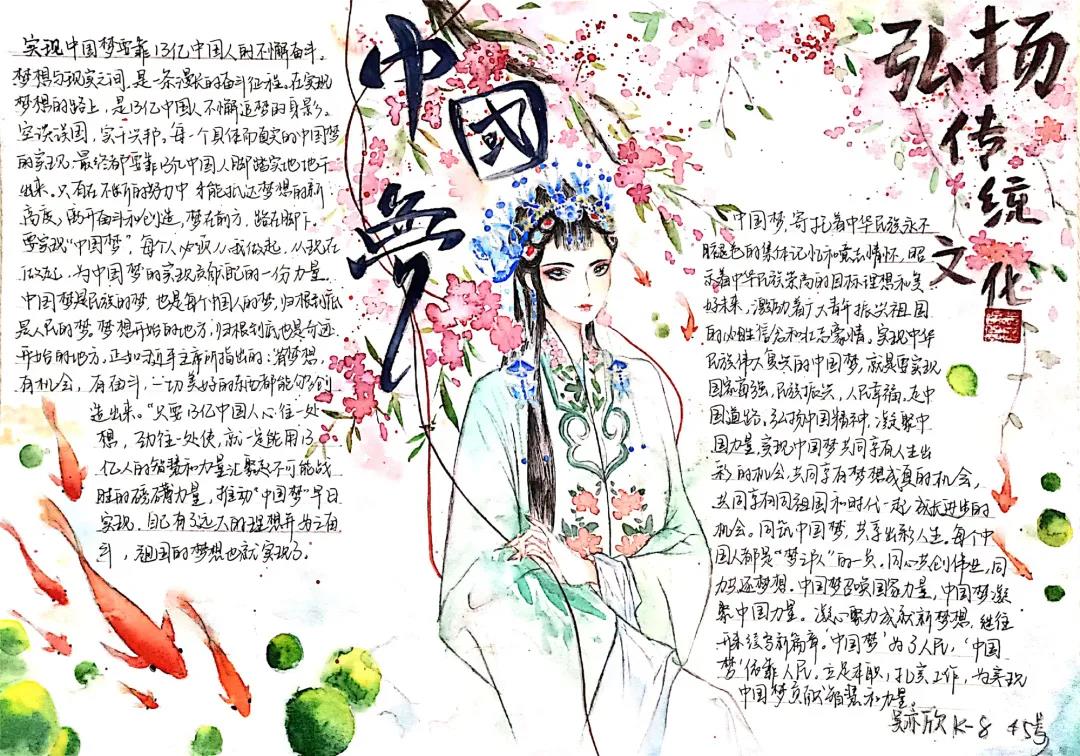 中國夢
弘扬
传统
文化
实现中国梦要靠13亿中国人的不懈奋斗。
梦想与现实之间,是一条漫长的奋斗征程,在实现
梦想的路上,是13亿中国人不懈追梦的身影。
空谈误国,实干兴邦。每一个具体而真实的中国梦
的实现,最终都要靠13亿中国人脚踏实地地干
出来。只有在不断的努力中才能抵达梦想的新
高度。离开奋斗和创造,梦在前方,路在脚下。
要实现“中国梦”,每个人必须从我做起,从现在
做起,为中国梦的实现贡献自己的一份力量。
中国梦是民族的梦,也是每个中国人的梦,归根到底
是人民的梦。梦想开始的地方,归根到底也是奇迹
开始的地方,正如习近平主席所指出的:“有梦想,
有机会,有奋斗,一切美好的东西都能够创
造出来。”只要13亿中国人心往一处
想,劲往一处使,就一定能用13
亿人的智慧和力量汇聚起不可能战
胜的磅礴力量,推动“中国梦”早日
实现,自己有了远大的理想并为之奋
斗,祖国的梦想也就实现了。
中国梦,寄托着中华民族永不
褪色的集体记忆和家国情怀,昭
示着中华民族崇高的目标理想和美
好未来,激励着广大青年振兴祖国
的必胜信念和壮志豪情。实现中华
民族伟大复兴的中国梦,就是要实现
国家富强,民族振兴,人民幸福,走中
国道路,弘扬中国精神,凝聚中
国力量,实现中国梦共同享有人生出
彩的机会,共同享有梦想成真的机会,
共同享有同祖国和时代一起成长进步的
机会。同筑中国梦,共享出彩人生。每个中
国人都是“梦之队”的一员,同心共创伟业,同
力放逐梦想。中国梦召唤国家力量,中国梦凝
聚中国力量。凝心聚力成就新梦想,继往
开来谱写新篇章。‘中国梦’为了人民,‘中国
梦’依靠人民。立足本职,扎实工作,为实现
中国梦贡献智慧和力量。
吴亦欣 K-8 45号